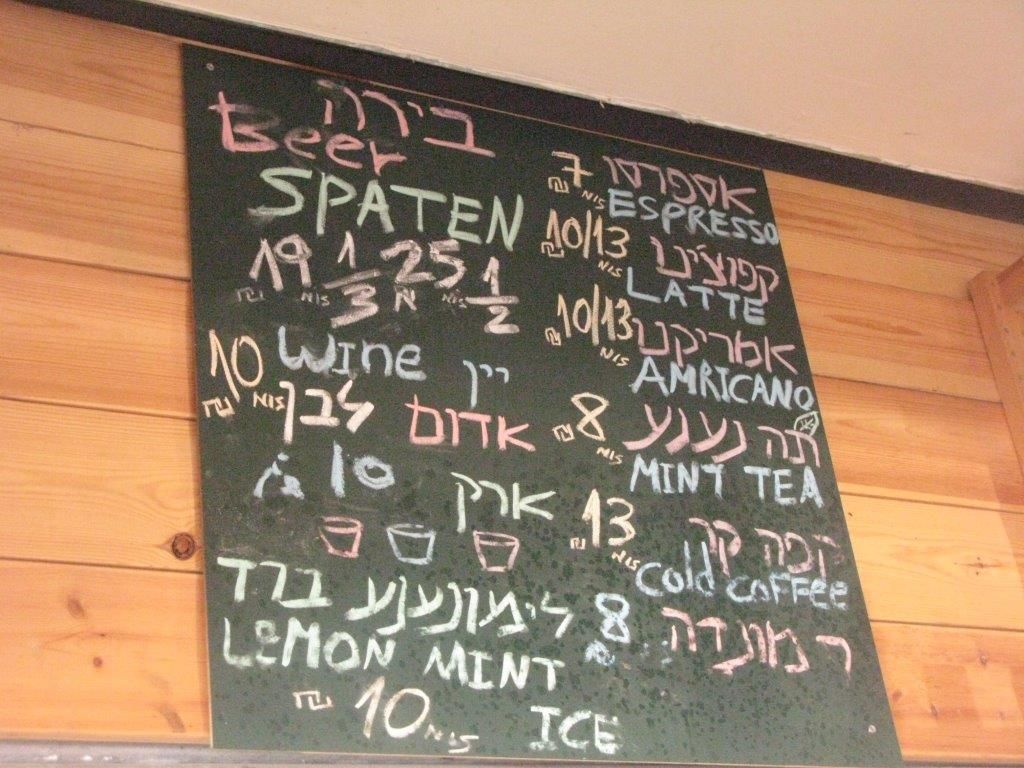 בירה
Beer
SPATEN
19 ₪ NIS 1/3 25 ₪ NIS 1/2
Wine יין
10 ₪ NIS לבן אדום
10 ארק
לימונענע ברד
LEMON MINT
₪ 10 NIS ICE
אספרסו 7 ₪ NIS
ESPRESSO
קפוצ'ינו 10/13 ₪ NIS
LATTE
אמריקנו 10/13 ₪ NIS
AMRICANO
תה נענע 8 ₪ NIS
MINT TEA
קפה קר 13 ₪ NIS
Cold COFFEE
8